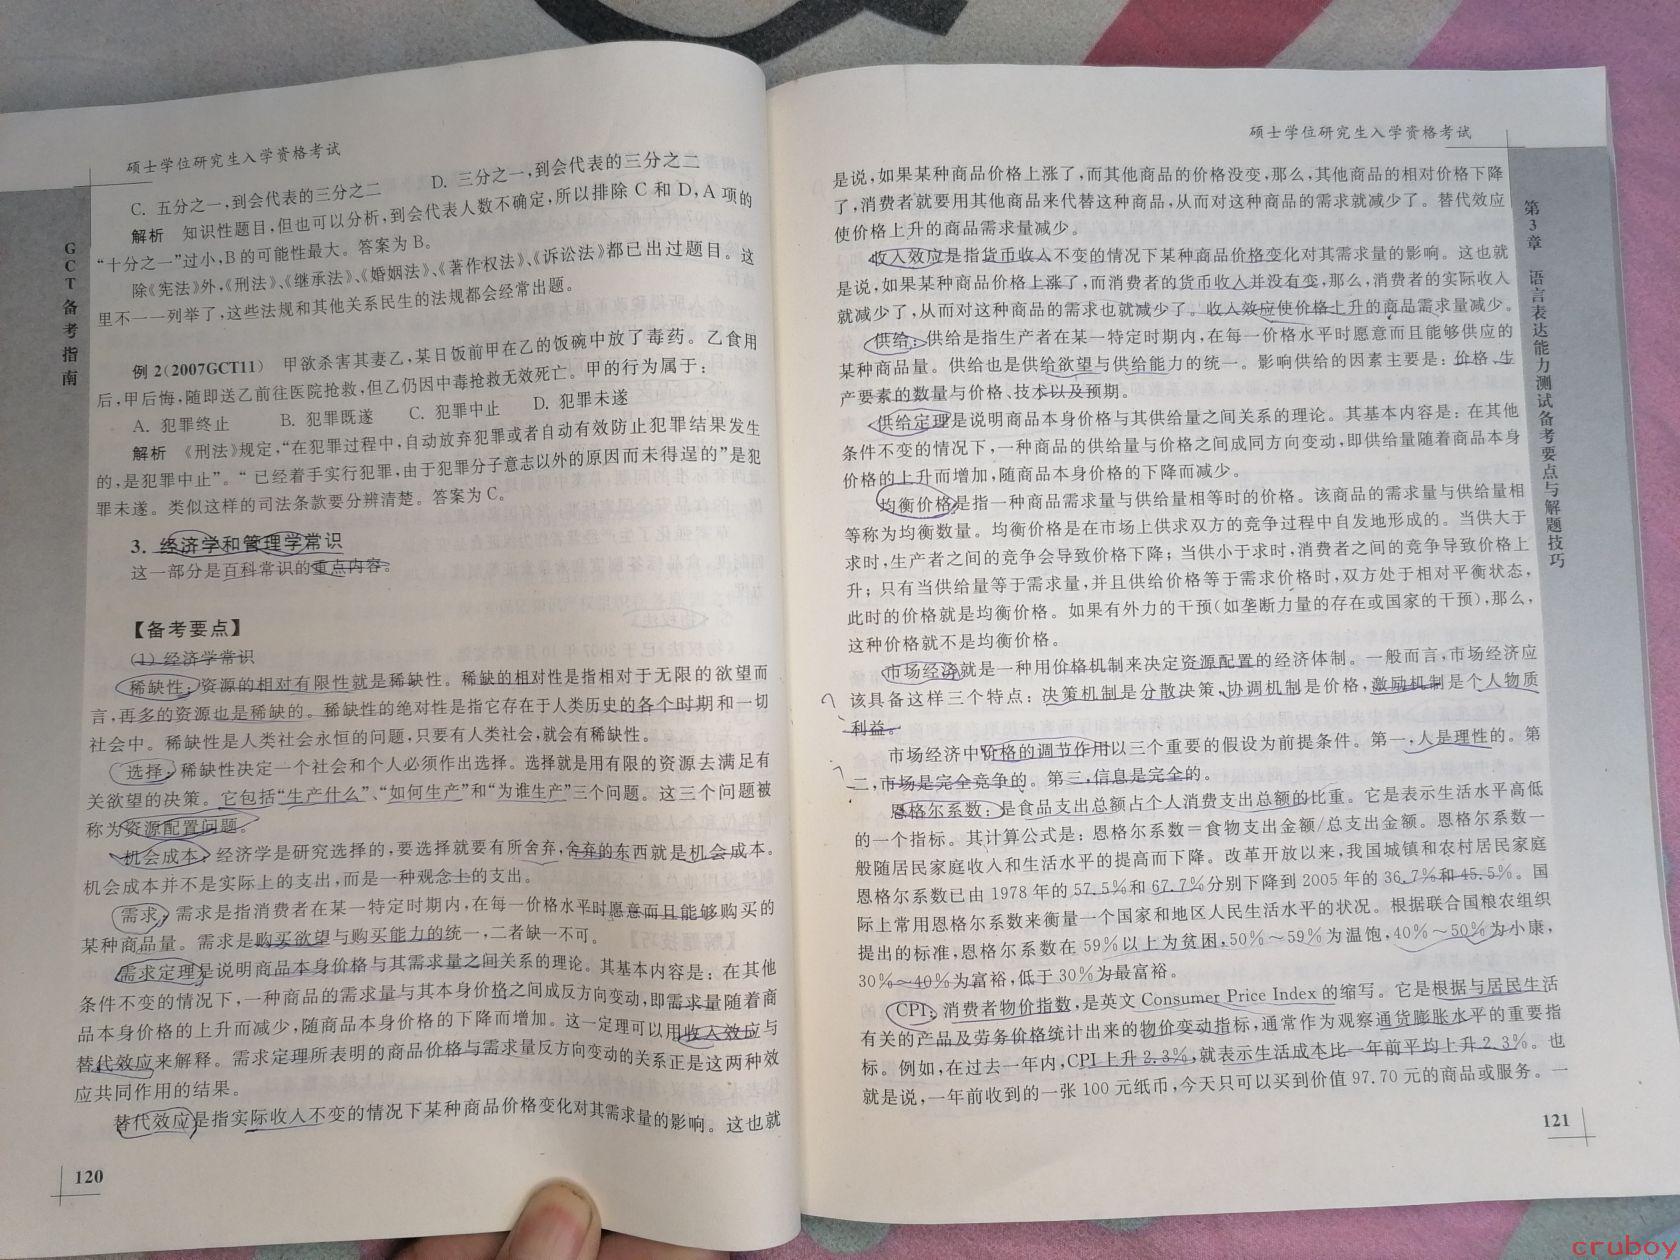 硕士学位研究生入学资格考试
GCT备考指南
C. 五分之一,到会代表的三分之二 D. 三分之一,到会代表的三分之二
解析 知识性题目,但也可以分析,到会代表人数不确定,所以排除 C 和 D,A 项的
“十分之一”过小,B 的可能性最大。答案为 B。
除《宪法》外,《刑法》、《继承法》、《婚姻法》、《著作权法》、《诉讼法》都已出过题目。这
里不一一列举了,这些法规和其他关系民生的法规都会经常出题。
例 2(2007GCT11) 甲欲杀害其妻乙,某日饭前甲在乙的饭碗中放了毒药。乙食用
后,甲后悔,随即送乙前往医院抢救,但乙仍因中毒抢救无效死亡。甲的行为属于:
A. 犯罪终止 B. 犯罪既遂 C. 犯罪中止 D. 犯罪未遂
解析 《刑法》规定,“在犯罪过程中,自动放弃犯罪或者自动有效防止犯罪结果发生
的,是犯罪中止”。“已经着手实行犯罪,由于犯罪分子意志以外的原因而未得逞的”是犯
罪未遂。类似这样的司法条款要分辨清楚。答案为 C。
3. 经济学和管理学常识
这一部分是百科常识的重点内容。
【备考要点】
(1) 经济学常识
稀缺性:资源的相对有限性就是稀缺性。稀缺的相对性是指相对于无限的欲望而
言,再多的资源也是稀缺的。稀缺性的绝对性是指它存在于人类历史的各个时期和一切
社会中。稀缺性是人类社会永恒的问题,只要有人类社会,就会有稀缺性。
选择:稀缺性决定一个社会和个人必须作出选择。选择就是用有限的资源去满足有
关欲望的决策。它包括“生产什么”、“如何生产”和“为谁生产”三个问题。这三个问题被
称为资源配置问题。
机会成本:经济学是研究选择的,要选择就要有所舍弃,舍弃的东西就是机会成本。
机会成本并不是实际上的支出,而是一种观念上的支出。
需求:需求是指消费者在某一特定时期内,在每一价格水平时愿意而且能够购买的
某种商品量。需求是购买欲望与购买能力的统一,二者缺一不可。
需求定理是说明商品本身价格与其需求量之间关系的理论。其基本内容是:在其他
条件不变的情况下,一种商品的需求量与其本身价格之间成反方向变动,即需求量随着商
品本身价格的上升而减少,随商品本身价格的下降而增加。这一定理可以用收入效应与
替代效应来解释。需求定理所表明的商品价格与需求量反方向变动的关系正是这两种效
应共同作用的结果。
替代效应是指实际收入不变的情况下某种商品价格变化对其需求量的影响。这也就
120
硕士学位研究生入学资格考试
第3章 语言表达能力测试备考要点与解题技巧
是说,如果某种商品价格上涨了,而其他商品的价格没变,那么,其他商品的相对价格下降
了,消费者就要用其他商品来代替这种商品,从而对这种商品的需求就减少了。替代效应
使价格上升的商品需求量减少。
收入效应是指货币收入不变的情况下某种商品价格变化对其需求量的影响。这也就
是说,如果某种商品价格上涨了,而消费者的货币收入并没有变,那么,消费者的实际收入
就减少了,从而对这种商品的需求也就减少了。收入效应使价格上升的商品需求量减少。
供给:供给是指生产者在某一特定时期内,在每一价格水平时愿意而且能够供应的
某种商品量。供给也是供给欲望与供给能力的统一。影响供给的因素主要是:价格、生
产要素的数量与价格、技术以及预期。
供给定理是说明商品本身价格与其供给量之间关系的理论。其基本内容是:在其他
条件不变的情况下,一种商品的供给量与价格之间成同方向变动,即供给量随着商品本身
价格的上升而增加,随商品本身价格的下降而减少。
均衡价格是指一种商品需求量与供给量相等时的价格。该商品的需求量与供给量相
等称为均衡数量。均衡价格是在市场上供求双方的竞争过程中自发地形成的。当供大于
求时,生产者之间的竞争会导致价格下降;当供小于求时,消费者之间的竞争导致价格上
升;只有当供给量等于需求量,并且供给价格等于需求价格时,双方处于相对平衡状态,
此时的价格就是均衡价格。如果有外力的干预(如垄断力量的存在或国家的干预),那么,
这种价格就不是均衡价格。
市场经济就是一种用价格机制来决定资源配置的经济体制。一般而言,市场经济应
该具备这样三个特点:决策机制是分散决策、协调机制是价格,激励机制是个人物质
利益。
市场经济中价格的调节作用以三个重要的假设为前提条件。第一,人是理性的。第
二,市场是完全竞争的。第三,信息是完全的。
恩格尔系数:是食品支出总额占个人消费支出总额的比重。它是表示生活水平高低
的一个指标。其计算公式是:恩格尔系数=食物支出金额/总支出金额。恩格尔系数一
般随居民家庭收入和生活水平的提高而下降。改革开放以来,我国城镇和农村居民家庭
恩格尔系数已由 1978 年的 57.5%和 67.7%分别下降到 2005 年的 36.7%和 45.5%。国
际上常用恩格尔系数来衡量一个国家和地区人民生活水平的状况。根据联合国粮农组织
提出的标准,恩格尔系数在 59%以上为贫困,50%～59%为温饱,40%～50%为小康,
30%～40%为富裕,低于 30%为最富裕。
CPI:消费者物价指数,是英文 Consumer Price Index 的缩写。它是根据与居民生活
有关的产品及劳务价格统计出来的物价变动指标,通常作为观察通货膨胀水平的重要指
标。例如,在过去一年内,CPI 上升 2.3%,就表示生活成本比一年前平均上升 2.3%。也
就是说,一年前收到的一张 100 元纸币,今天只可以买到价值 97.70 元的商品或服务。一
121
cruboy